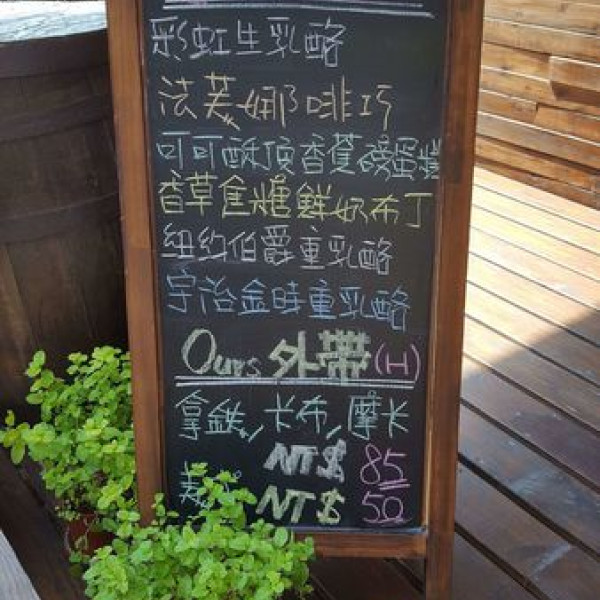 彩虹生乳酪
法芙娜啡巧
可可酥頂香蕉磅蛋糕
香草焦糖鮮奶布丁
紐約伯爵重乳酪
宇治金時重乳酪
Ours 外帶(H)
拿鉄/卡布/摩卡
NT$ 85
美 NT$ 50